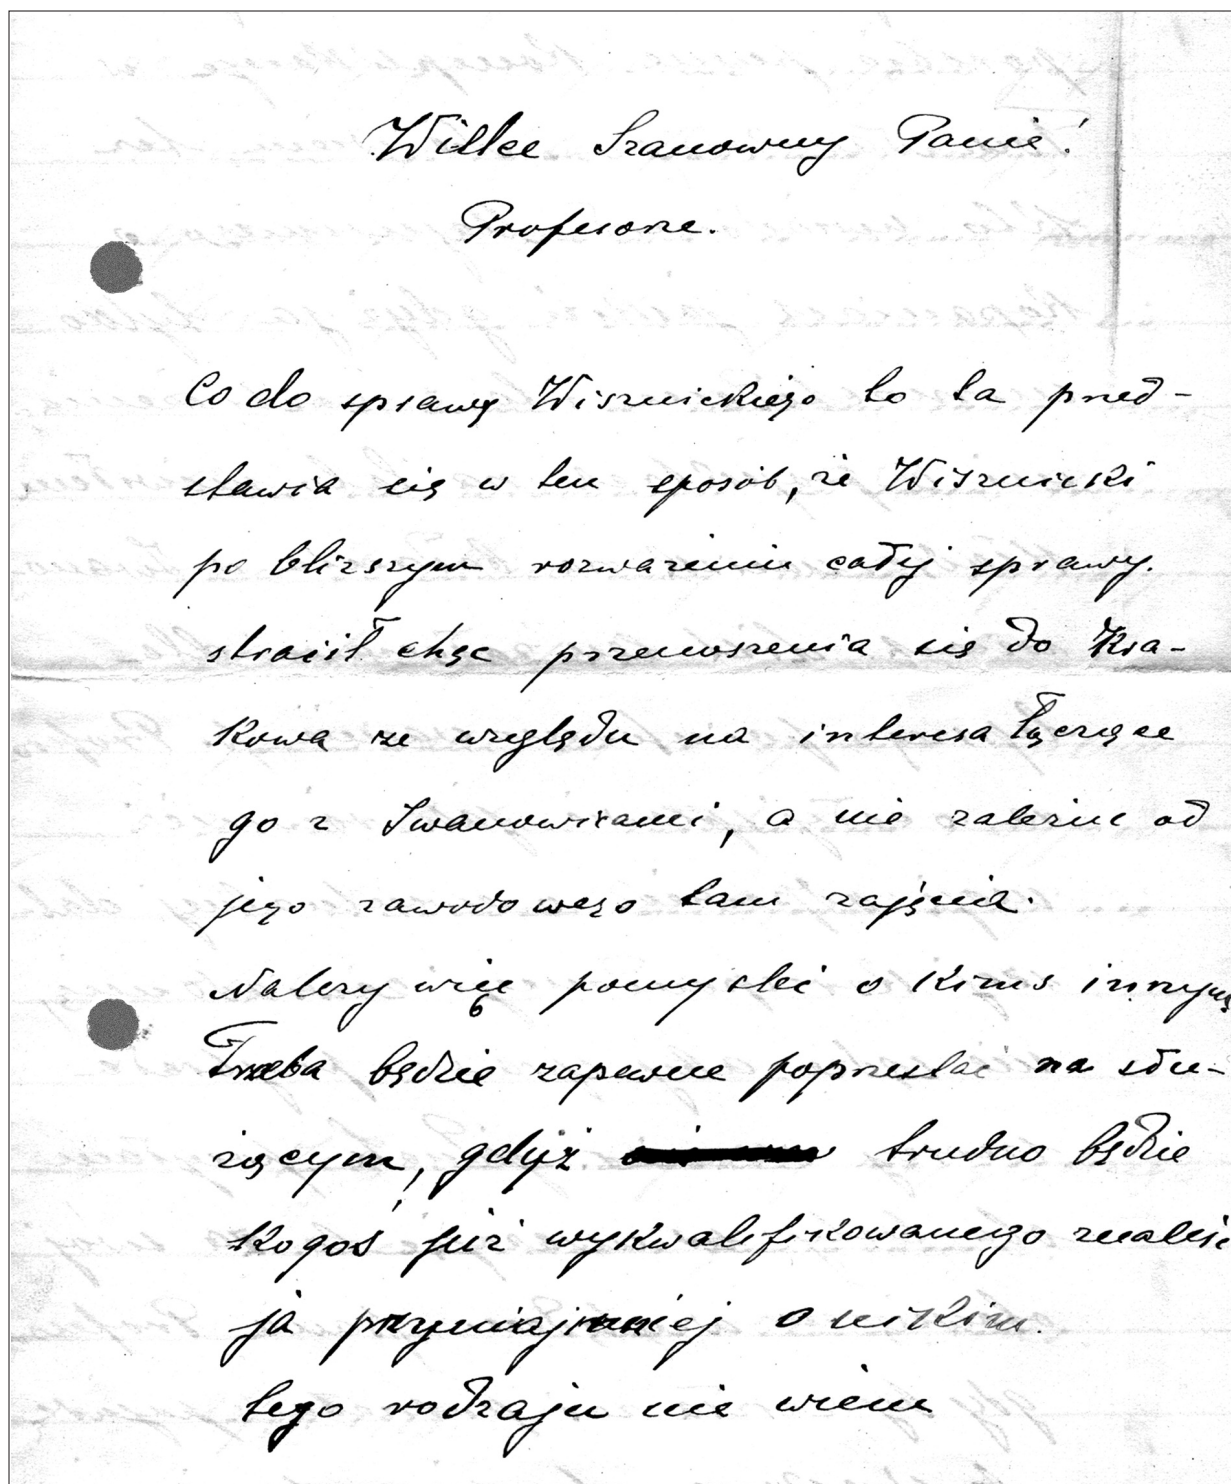 Wielce Szanowny Panie!
Profesorze.
Co do sprawy Wisznickiego to ta przed-
stawia się w ten sposób, że Wisznicki
po bliższym rozważeniu całej sprawy.
stracił chęć przenoszenia się do Kra-
kowa ze względu na interesa łączące
go z Iwanowicami, a nie zależne od
jego zawodowego tam zajęcia.
Należy więc pomyśleć o kimś innym
Trzeba będzie zapewne poprzestać na słu-
żącym, gdyż trudno będzie
kogoś już wykwalifikowanego znaleść
ja przynajmniej o nikim
tego rodzaju nie wiem